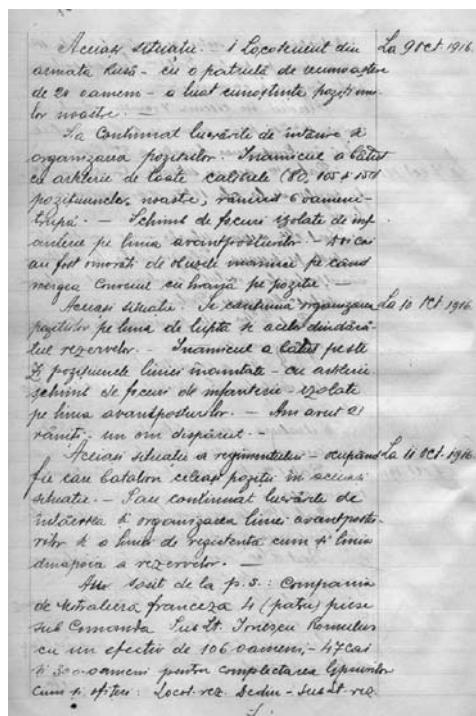 Aceiași situație. - 1 Locotenent din La 9 Oct. 1916.
armata Rusă - cu o patrulă de recunoaștere
de 20 oameni - a luat cunoștință pozițiuni
lor noastre. -
S'a continuat lucrările de întărire și
organizarea pozițiilor. Inamicul a bătut
cu artilerie de toate calibrele (80, 105 și 150
pozițiunele noastre, rănind 6 oameni
trupă. - Schimb de focuri izolate de inf
anterie pe linia avantposturilor. - Doi cai
au fost omorâți de obuzele inamice pe când
mergea Convoiul cu hrană pe poziție -
Aceiași situație. Se continuă organizarea La 10 Oct 1916.
pozițiilor pe linia de luptă și acele dindără-
tul rezervelor. - Inamicul a bătut peste
zi pozițiunele liniei înaintate - cu artilerie
schimb de focuri de infanterie - izolate
pe linia avantposturilor. - Am avut 21
răniți un om dispărut. -
Aceiași situație a regimentului - ocupând La 11 Oct. 1916.
fie care batalion celeași poziții în aceiași
situație. - S'au continuat lucrările de
și organizarea liniei avantpostu-
rilor și a liniei de rezistență cum și linia
dinapoia a rezervelor. -
Au sosit de la p. s.: Compania
de Mitraliera franceza 4 (patru) piese
sub Comanda Sub Lt. Ionescu Romulus
cu un efectiv de 106 oameni, - 47 cai
și 300 oameni pentru complectarea Gpurilor
cum și ofițeri: Locot. rez. Dediu - Sub Lt. rez.